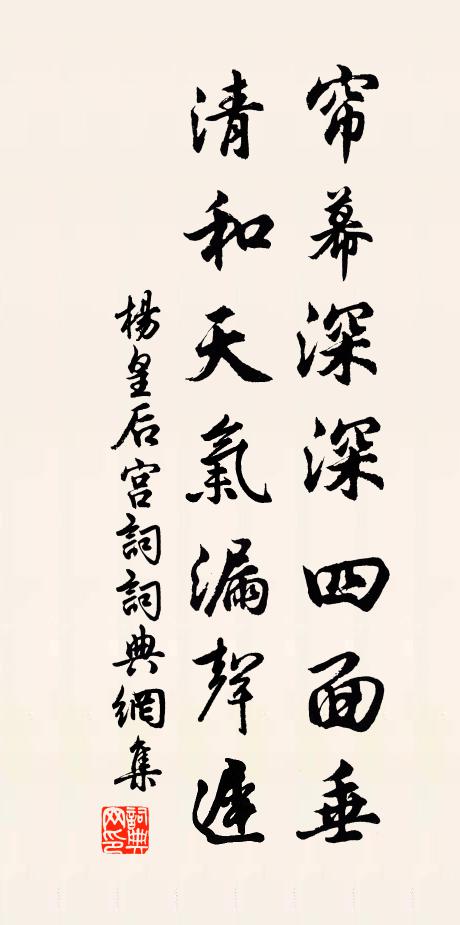 帘幕深深四面垂
清和天氣漏聲遲
楊皇后宫詞詞典網集
詞典网印